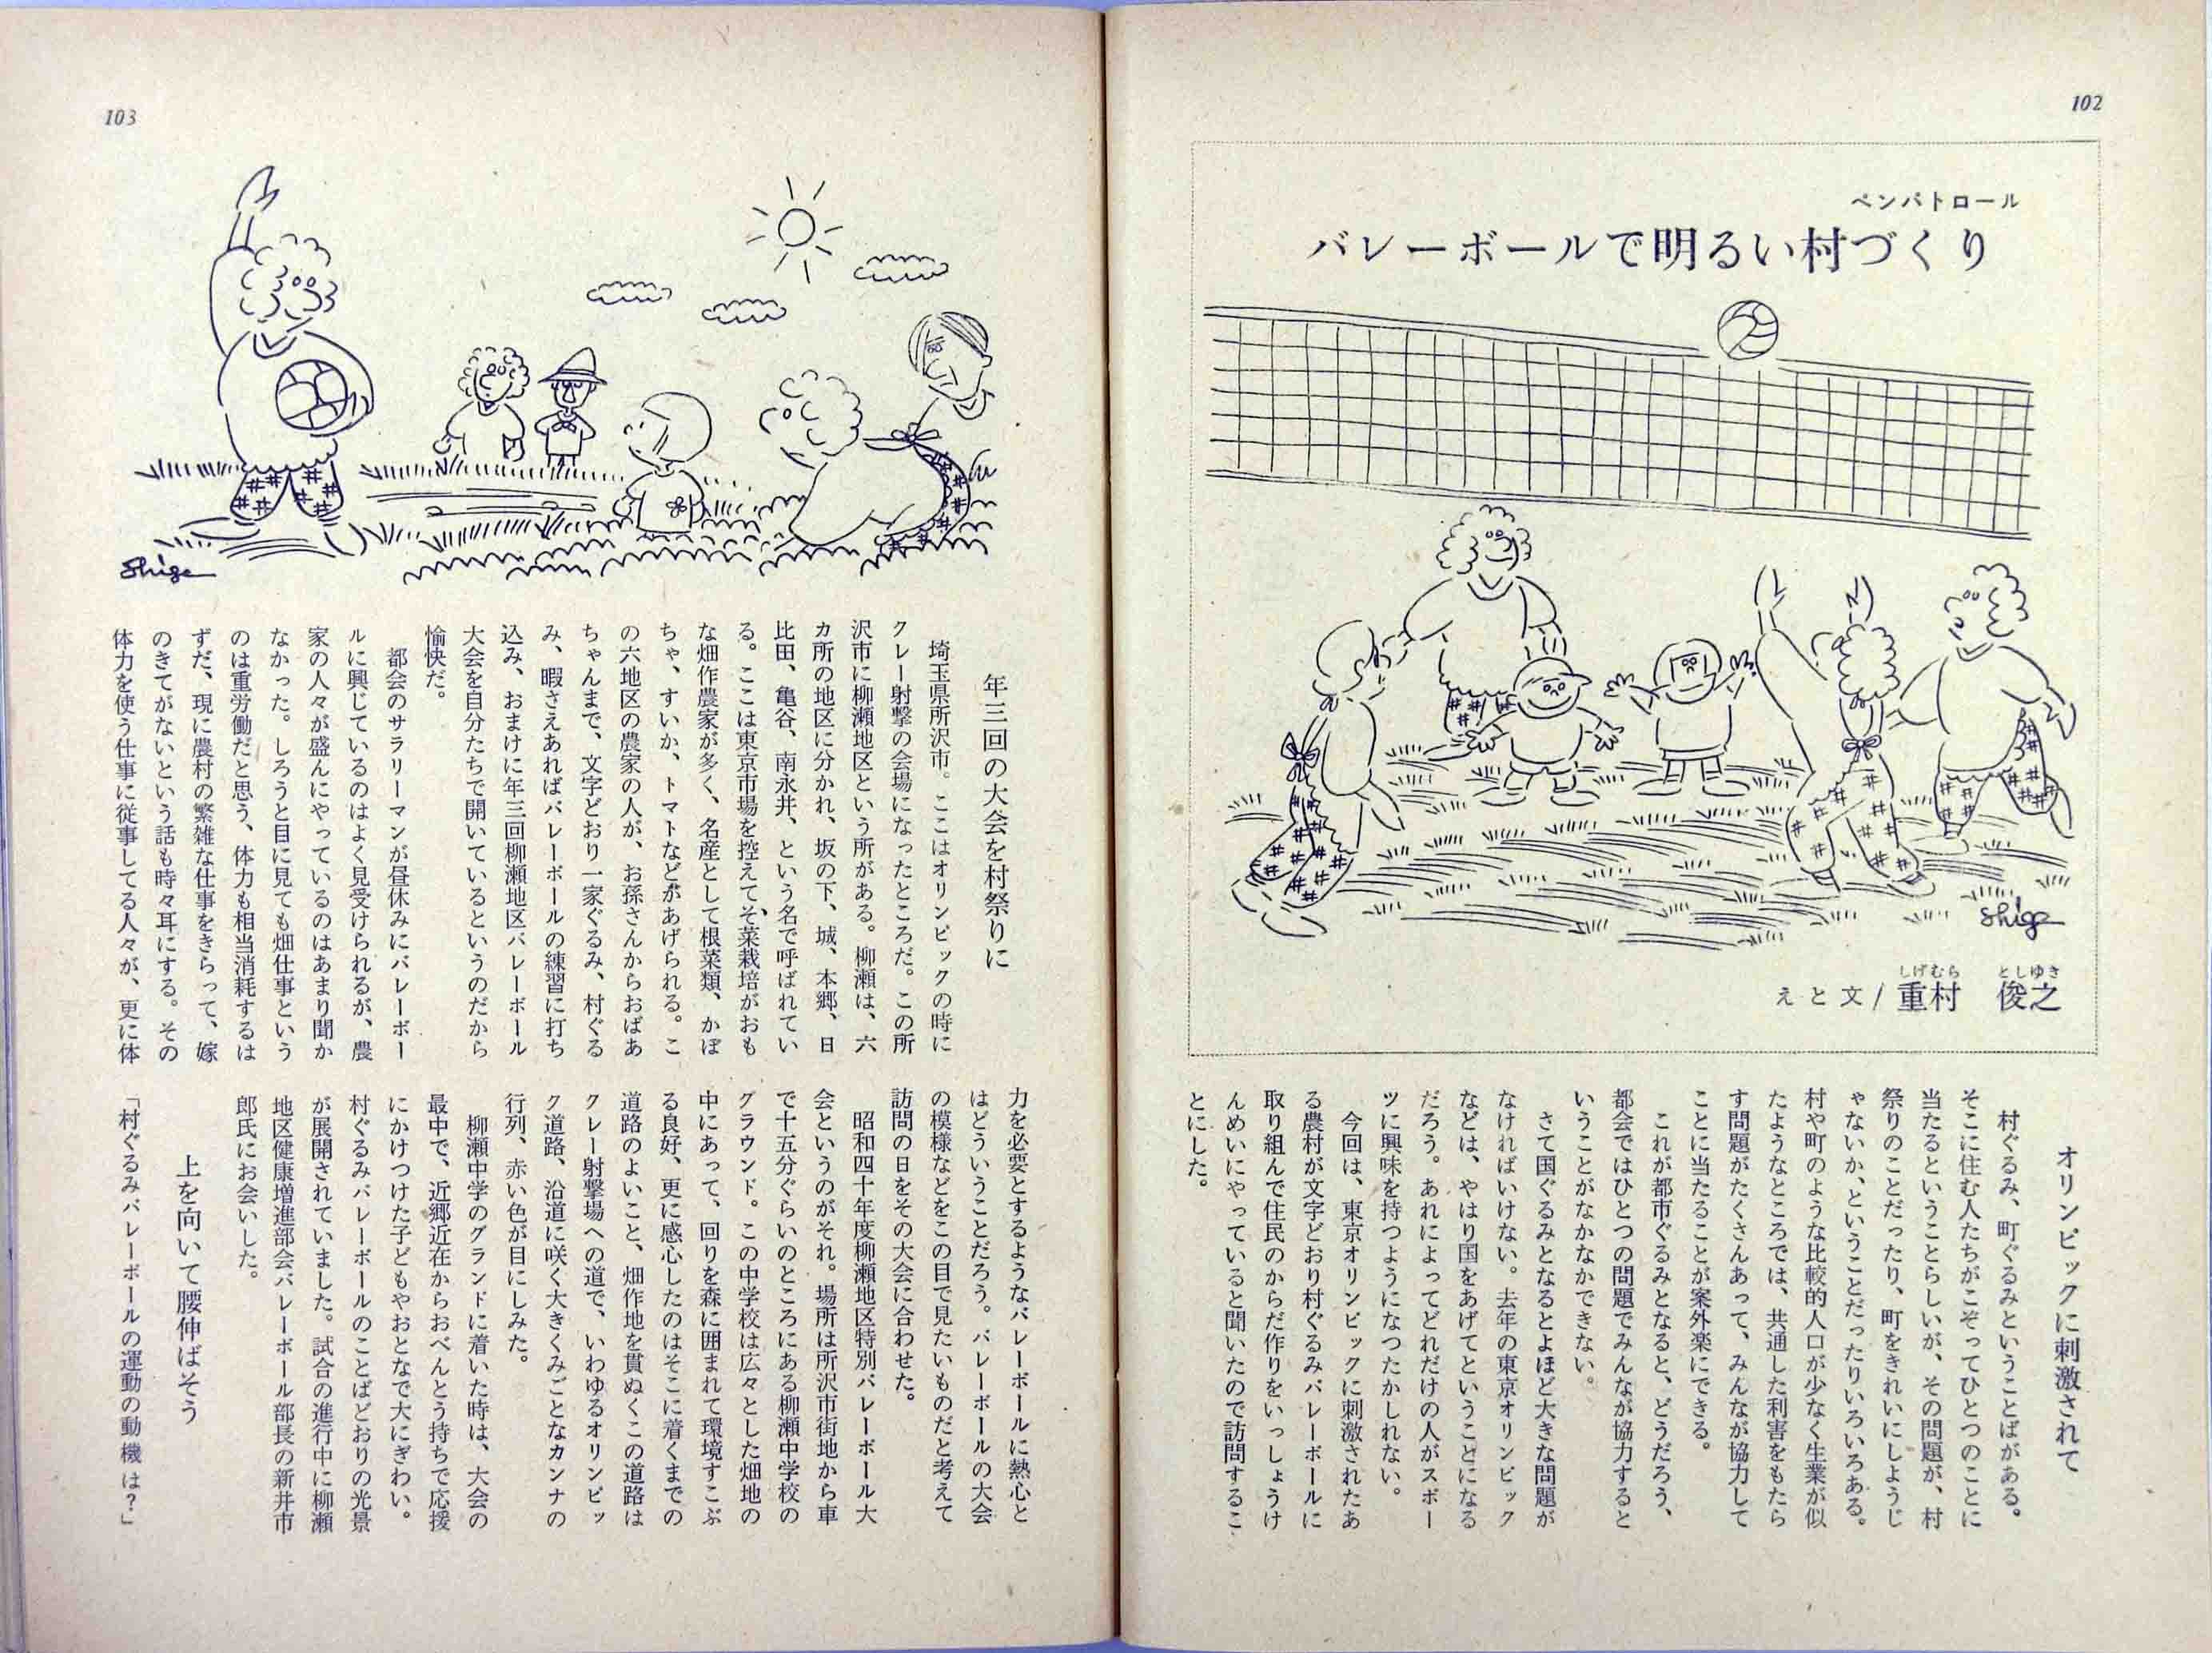 102
ペンパトロール
バレーボールで明るい村づくり
Shige
えと文/重村 俊之
しげむら としゆき
オリンピックに刺激されて
村ぐるみ、町ぐるみということばがある。
そこに住む人たちがこぞってひとつのことに
当たるということらしいが、その問題が、村
祭りのことだったり、町をきれいにしようじ
ゃないか、ということだったりいろいろある。
村や町のような比較的人口が少なく生業が似
たようなところでは、共通した利害をもたら
す問題がたくさんあって、みんなが協力して
ことに当たることが案外楽にできる。
これが都市ぐるみとなると、どうだろう、
都会ではひとつの問題でみんなが協力すると
いうことがなかなかできない。
さて国ぐるみとなるとよほど大きな問題が
なければいけない。去年の東京オリンピック
などは、やはり国をあげてということになる
だろう。あれによってどれだけの人がスポー
ツに興味を持つようになつたかしれない。
今回は、東京オリンピックに刺激されたあ
る農村が文字どおり村ぐるみバレーボールに
取り組んで住民のからだ作りをいっしょうけ
んめいにやっていると聞いたので訪問するこ
とにした。
103
Shige
年三回の大会を村祭りに
埼玉県所沢市。ここはオリンピックの時に
クレー射撃の会場になったところだ。この所
沢市に柳瀬地区という所がある。柳瀬は、六
カ所の地区に分かれ、坂の下、城、本郷、日
比田、亀谷、南永井、という名で呼ばれてい
る。ここは東京市場を控えてそ菜栽培がおも
な畑作農家が多く、名産として根菜類、かぼ
ちゃ、すいか、トマトなどがあげられる。こ
の六地区の農家の人が、お孫さんからおばあ
ちゃんまで、文字どおり一家ぐるみ、村ぐる
み、暇さえあればバレーボールの練習に打ち
込み、おまけに年三回柳瀬地区バレーボール
大会を自分たちで開いているというのだから
愉快だ。
都会のサラリーマンが昼休みにバレーボー
ルに興じているのはよく見受けられるが、農
家の人々が盛んにやっているのはあまり聞か
なかった。しろうと目に見ても畑仕事という
のは重労働だと思う、体力も相当消耗するは
ずだ、現に農村の繁雑な仕事をきらって、嫁
のきてがないという話も時々耳にする。その
体力を使う仕事に従事してる人々が、更に体
力を必要とするようなバレーボールに熱心と
はどういうことだろう。バレーボールの大会
の模様などをこの目で見たいものだと考えて
訪問の日をその大会に合わせた。
昭和四十年度柳瀬地区特別バレーボール大
会というのがそれ。場所は所沢市街地から車
で十五分ぐらいのところにある柳瀬中学校の
グラウンド。この中学校は広々とした畑地の
中にあって、回りを森に囲まれて環境すこぶ
る良好、更に感心したのはそこに着くまでの
道路のよいこと、畑作地を貫ぬくこの道路は
クレー射撃場への道で、いわゆるオリンピッ
ク道路、沿道に咲く大きくみごとなカンナの
行列、赤い色が目にしみた。
柳瀬中学のグランドに着いた時は、大会の
最中で、近郷近在からおべんとう持ちで応援
にかけつけた子どもやおとなで大にぎわい。
村ぐるみバレーボールのことばどおりの光景
が展開されていました。試合の進行中に柳瀬
地区健康増進部会バレーボール部長の新井市
郎氏にお会いした。
上を向いて腰伸ばそう
「村ぐるみバレーボールの運動の動機は？」